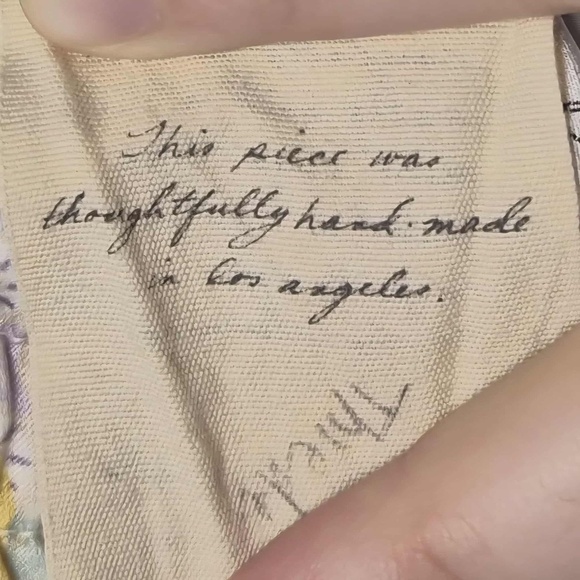 This piece was
thoughtfully hand-made
in los angeles.